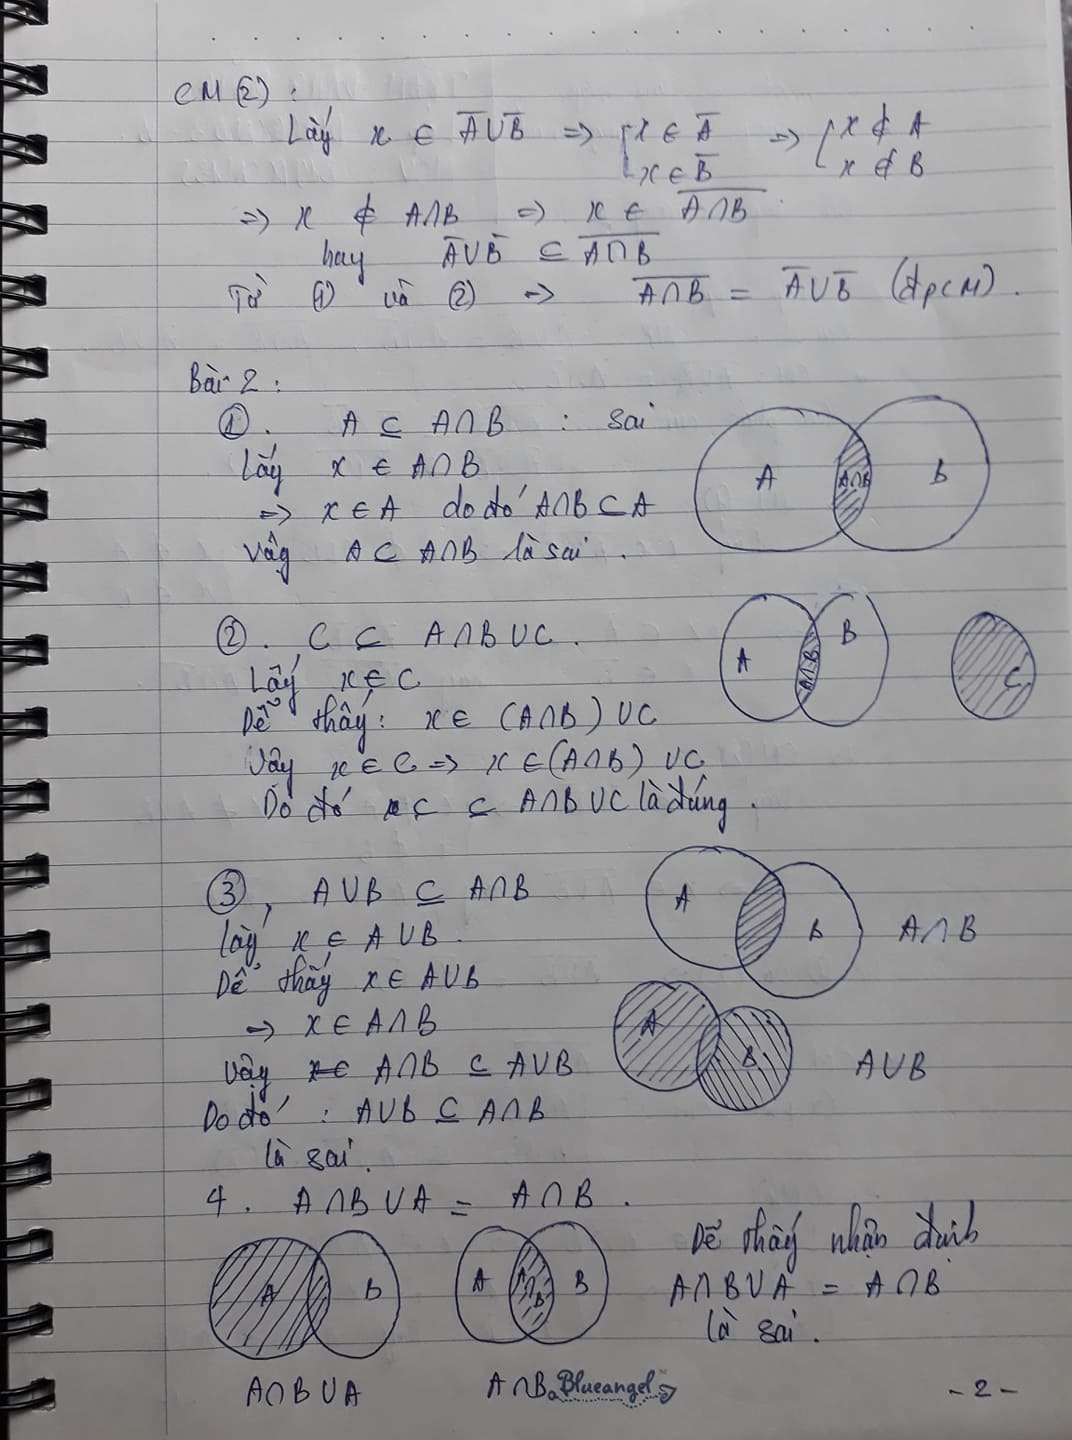 CM (2) :
Lấy x ∈ A̅ ∪ B̅ => [ x ∈ A̅ => [ x ∉ A
x ∈ B̅ x ∉ B
=> x ∉ A∩B => x ∈ \overline{A∩B}
hay A̅ ∪ B̅ ⊆ \overline{A∩B}
Từ (1) và (2) => \overline{A∩B} = A̅ ∪ B̅ (đpcm) .
Bài 2 :
① . A ⊆ A∩B : sai
Lấy x ∈ A∩B
=> x ∈ A do đó A∩B ⊂ A
Vậy A ⊂ A∩B là sai .
A
A∩B
B
② . C ⊆ A∩B∪C .
Lấy x ∈ C
Dễ thấy : x ∈ (A∩B) ∪C
Vậy x ∈ C => x ∈ (A∩B) ∪C
Do đó C ⊆ A∩B∪C là đúng .
A
A∩B
B
C
③ , A∪B ⊆ A∩B
lấy x ∈ A∪B .
Dễ thấy x ∈ A∪B
=> x ∈ A∩B
Vậy A∩B ⊆ A∪B
Do đó : A∪B ⊆ A∩B
là sai .
A
B
A∩B
A
B
A∪B
4 . A∩B∪A = A∩B .
A
B
A∩B∪A
A
A∩B
B
A∩B
Dễ thấy nhận định
A∩B∪A = A∩B
là sai .
Blueangel
- 2 -